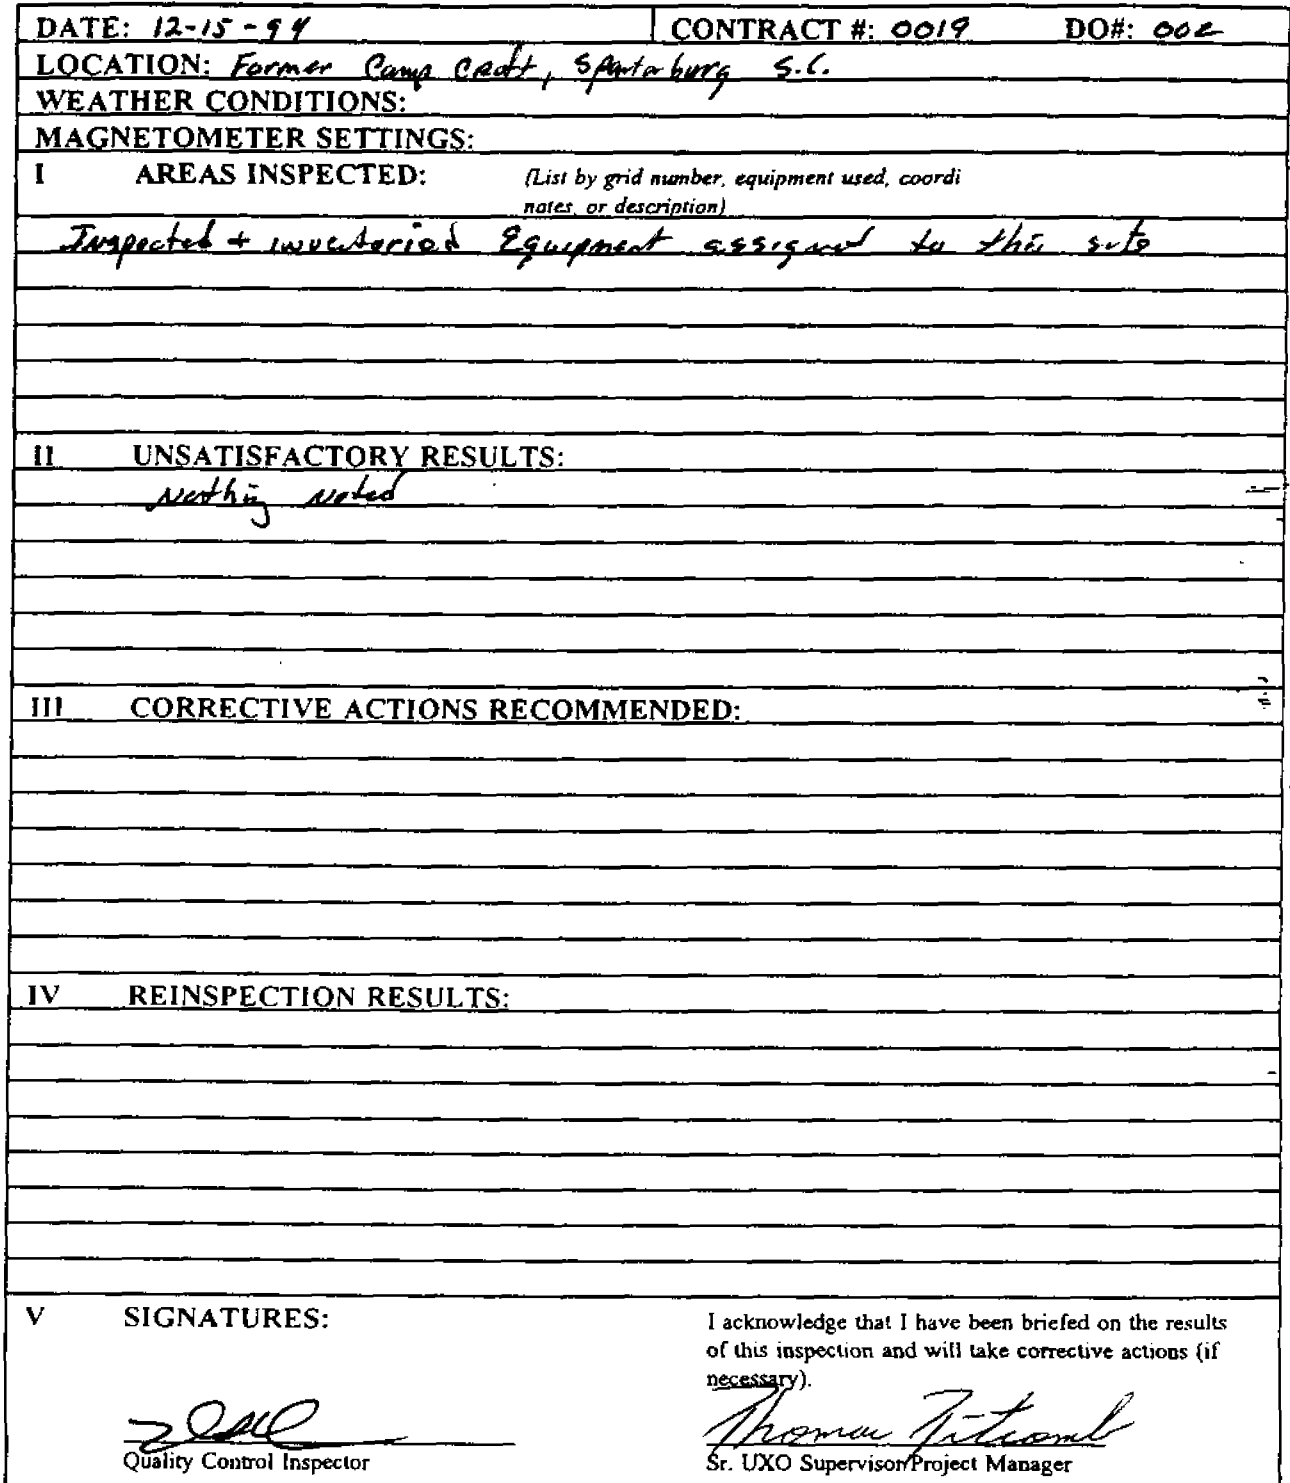 DATE: 12-15-94 CONTRACT #: 0019 DO#: 002
LOCATION: Former Camp Croft, Spartanburg S.C.
WEATHER CONDITIONS:
MAGNETOMETER SETTINGS:
I AREAS INSPECTED: (List by grid number, equipment used, coordi
nates, or description)
Inspected + inventoried Equipment assigned to this site
II UNSATISFACTORY RESULTS:
Nothing Noted
III CORRECTIVE ACTIONS RECOMMENDED:
IV REINSPECTION RESULTS:
V SIGNATURES:
I acknowledge that I have been briefed on the results
of this inspection and will take corrective actions (if
necessary).
Thomas Titcomb
Quality Control Inspector Sr. UXO Supervisor/Project Manager